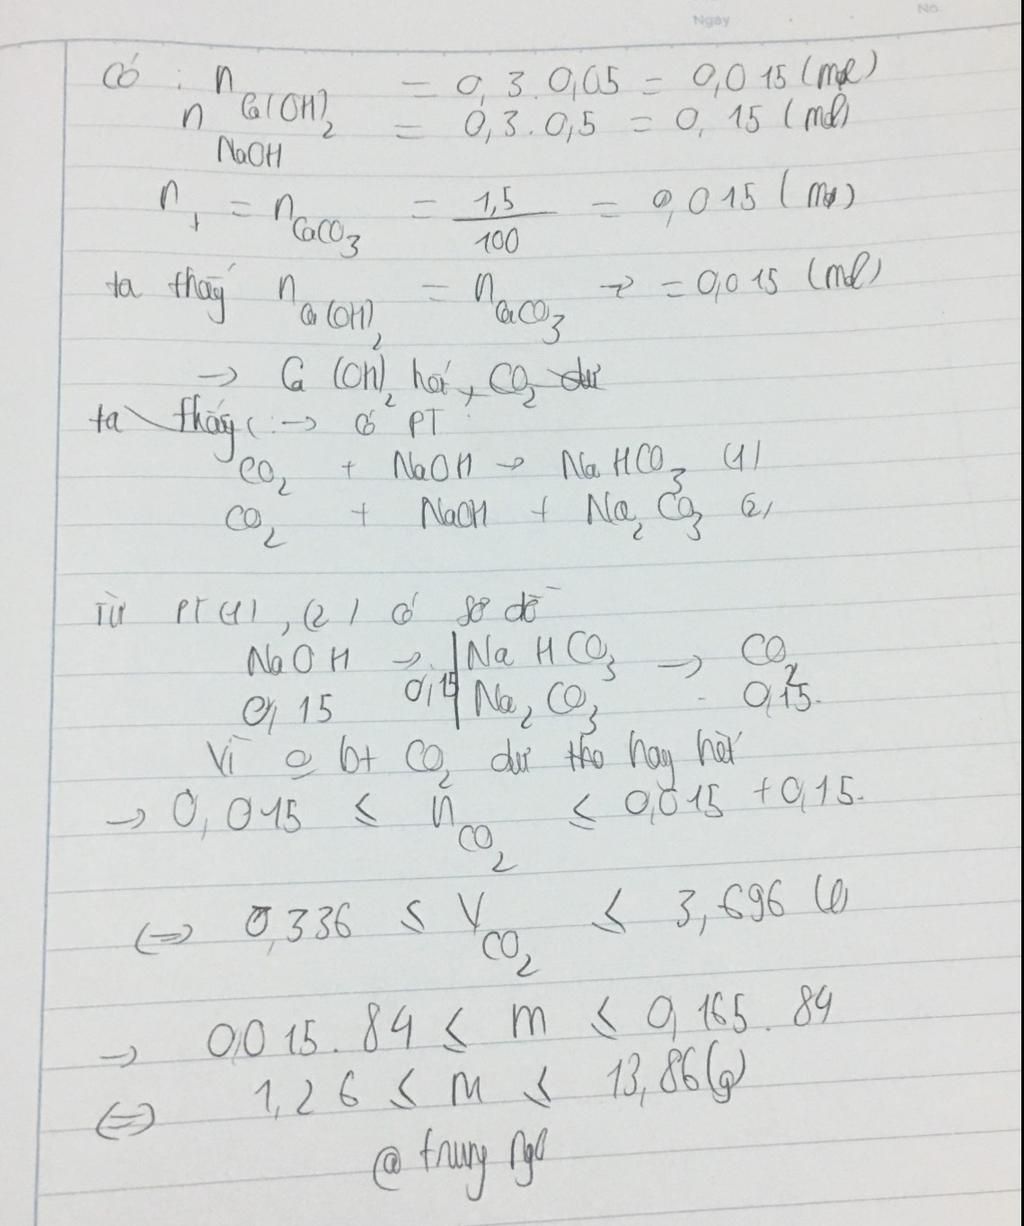 No.
Ngày
Có : n Ca(OH)2 = 0,3 . 0,05 = 0,015 (mol)
n NaOH = 0,3 . 0,5 = 0,15 (mol)
n↓ = nCaCO3 = 1,5/100 = 0,015 (mol)
ta thấy nCa(OH)2 = nCaCO3 → = 0,015 (mol)
→ Ca(OH)2 hết, CO2 dư
ta thấy : → có PT
CO2 + NaOH → NaHCO3 (1)
CO2 + NaOH + Na2CO3 (2)
Từ PT (1), (2) có sơ đồ
NaOH → | NaHCO3 → CO2
0,15 0,15 | Na2CO3 0,15.
Vì o bt CO2 dư tho hay hết
→ 0,015 ≤ nCO2 ≤ 0,015 + 0,15.
(=) 0,336 ≤ VCO2 ≤ 3,696 (l)
→ 0,015 . 84 ≤ m ≤ 0,165 . 84
(=) 1,26 ≤ m ≤ 13,86 (g)
@ trung ngo